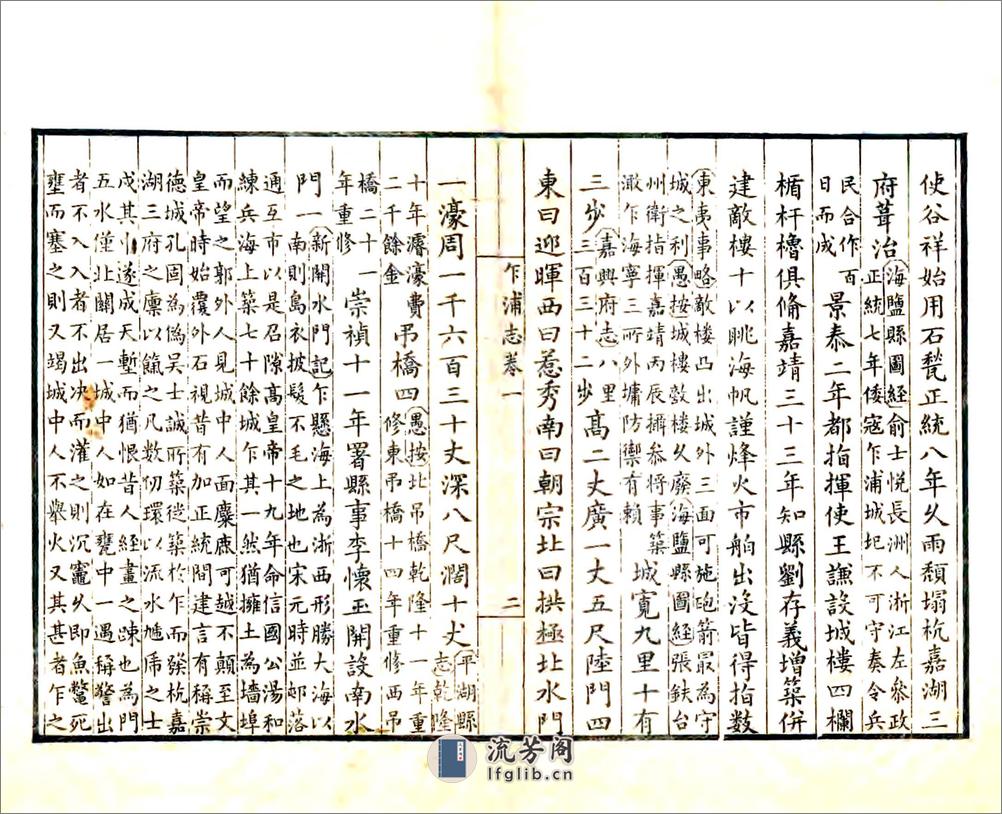 使谷祥始用石甃正統八年久雨頹塌杭嘉湖三
府葺治海鹽縣圖經俞士悅長洲人浙江左參政
正統七年倭寇乍浦城圮不可守奏令兵
民合作百
日而成景泰二年都指揮使王謙設城樓四欄
楯杆櫓俱俻嘉靖三十三年知縣劉存義增築併
建敵樓十以眺海帆謹烽火市舶出没皆得指數
東夷事略敵樓凸出城外三面可施砲箭最為守
城之利愚按城樓敵樓久廢海鹽縣圖經張鈇台
州衛指揮嘉靖丙辰攝叅將事築
澉乍海寧三所外墉防禦有賴城寬九里十有
三步嘉興府志八里
三百三十二步高二丈廣一丈五尺陸門四
東曰迎暉西曰惹秀南曰朝宗北曰拱極北水門
乍浦志卷一
二
一濠周一千六百三十丈深八尺濶十丈平湖縣
志乾隆
十年濬濠費
二千餘金吊橋四愚按北吊橋乾隆十一年重
修東吊橋十四年重修西吊
橋二十一
年重修崇禎十一年署縣事李懷玉開設南水
門一新開水門記乍懸海上為浙西形勝大海以
南則島衣披髮不毛之地也宋元時並邨落
通互市以是召隙高皇帝十九年命信國公湯和
練兵海上築七十餘城乍其一然猶擁土為墻埠
而望之郭外人見城中人面麋鹿可越不顛至文
皇帝時始覆外石視昔有加正統間建言有稱崇
德城孔固為偽吳士誠所築徙築於乍而發杭嘉
湖三府之廪以餼之凡數仞環以流水虓虎之士
戍其中遂成天塹而猶恨昔人經畫之踈也為門
五水僅北關居一城中人如在甕中一遇稱警出
者不入入者不出决而灌之則沉竈久即魚鱉死
壅而塞之則又竭城中人不舉火又其甚者乍之
流芳阁
lfglib.cn